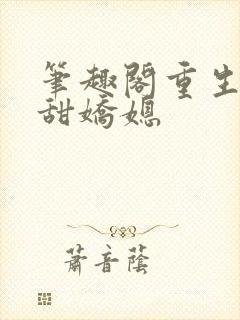 筆趣閣重生
甜嬌媳
蕭音蔭